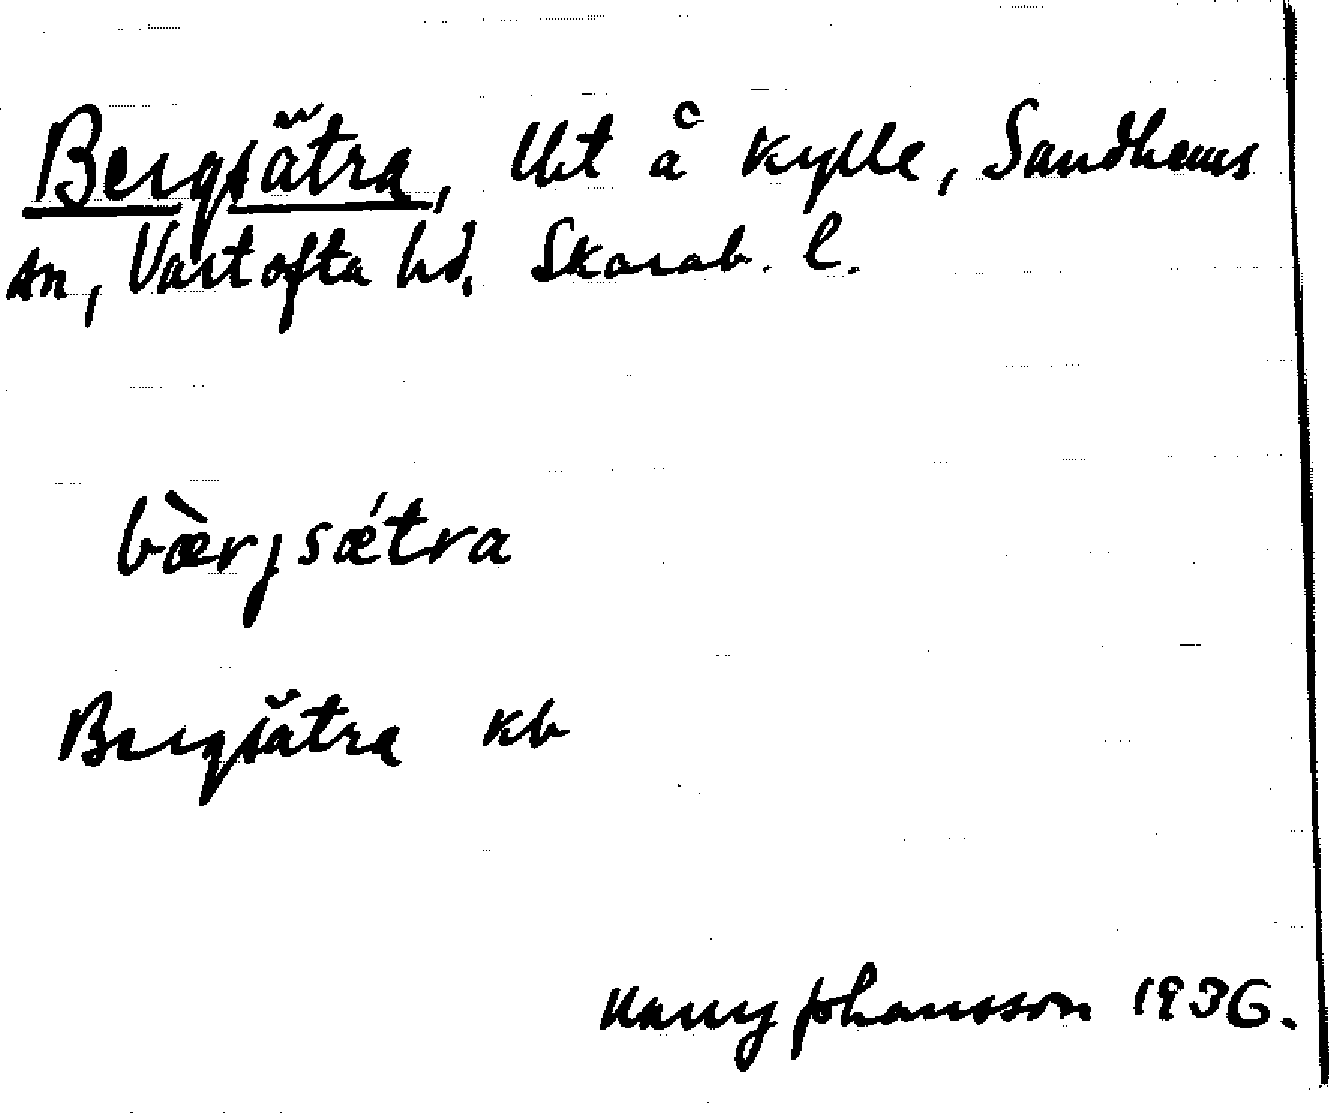 Bergsätra, lht å Kylle, Sandhems
sn, Vartofta hd. Skarab. l.
bæ̀rjsǽtra
Bergsätra kb
Harry Johansson 1936.